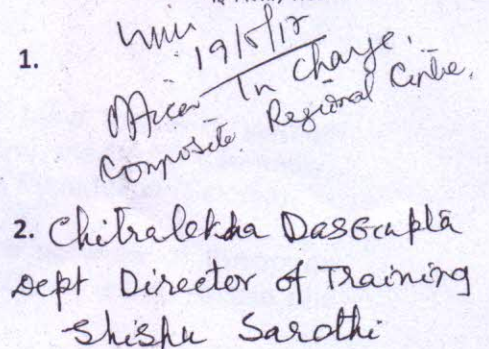 1.
19/5/17
Officer In charge.
Composite Regional Centre.
2. Chitralekha DasGupta
Dept Director of Training
Shishu Sarothi